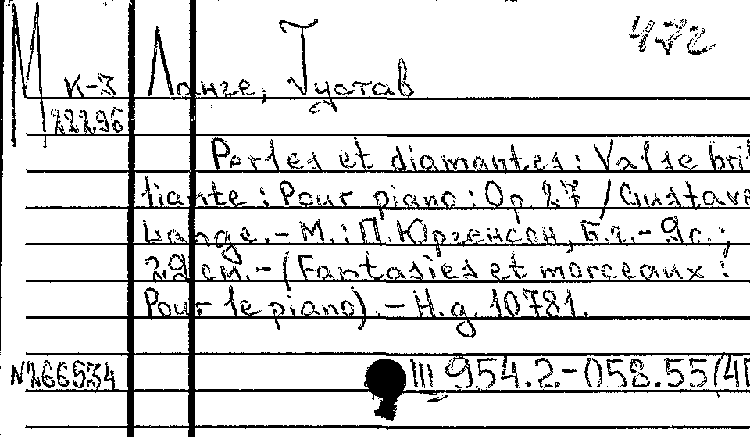 М
472
К-3 Ланге, Густав
22296
Perles et diamantes: Valse bril
liante : Pour piano : Op. 27 / Gustave
Lange. - М. : П. Юргенсон, Б.г. - 9с. ;
29 см. - (Fantasies et morceaux :
Pour le piano). - Н.д. 10781.
№266534
III 954.2.-058.55(4П